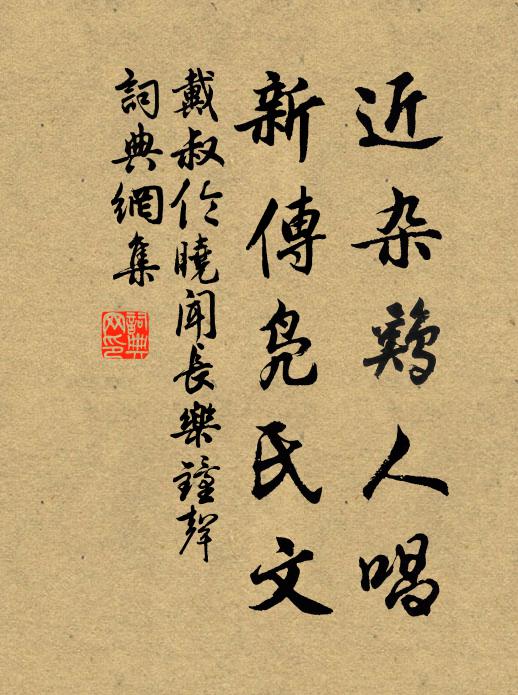 近杂鷄人唱
新傳凫氏文
戴叔伦曉聞長樂鐘聲
詞典網集
詞典網印